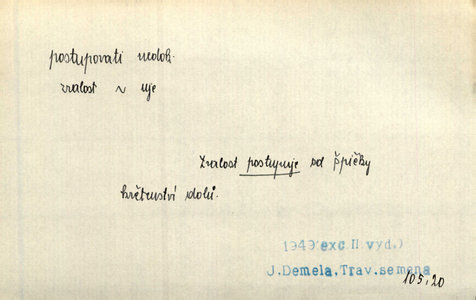 postupovati nedok.
zralost ~ uje
Zralost postupuje od špičky
květenství dolů.
1949 exc. II. vyd.)
J. Demela, Trav. semena
105, 20